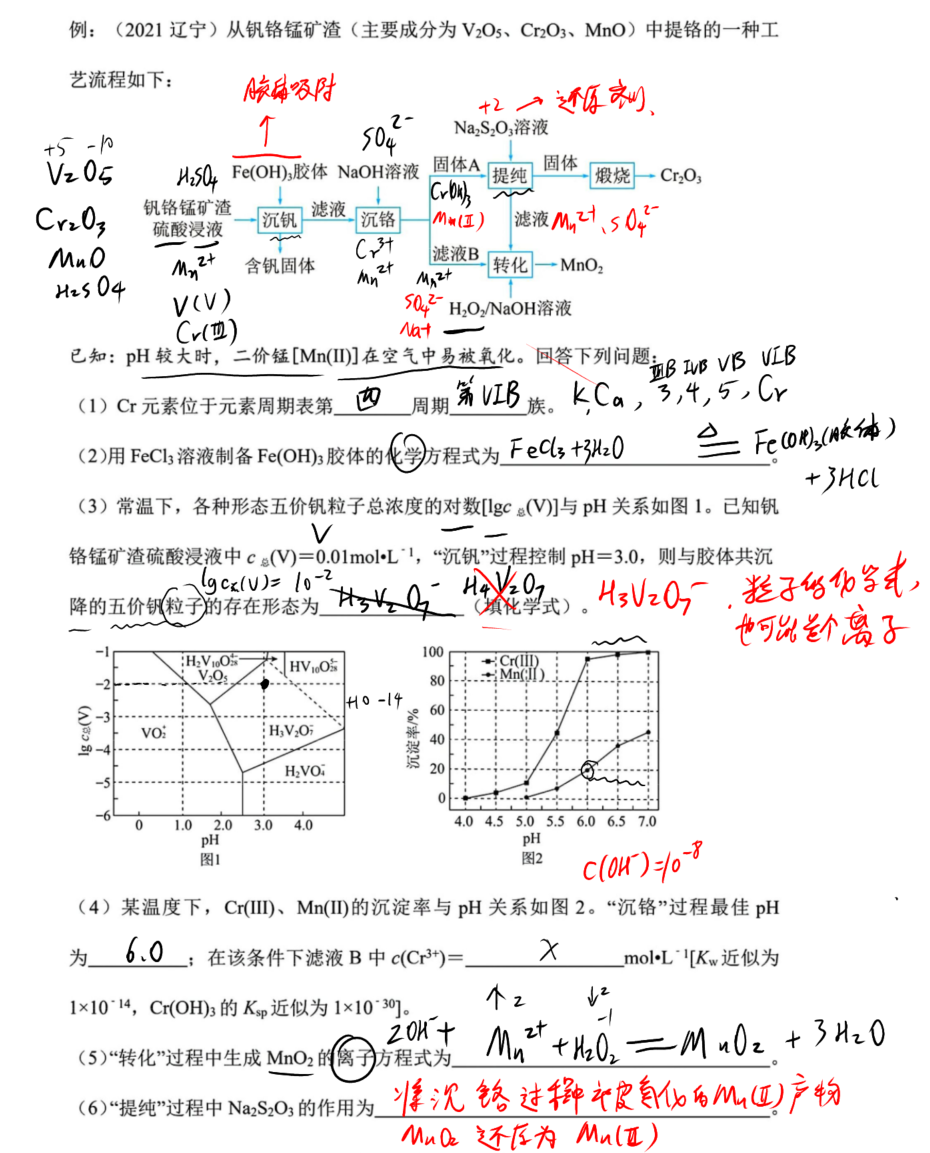 例：（2021 辽宁）从钒铬锰矿渣（主要成分为 V₂O₅、Cr₂O₃、MnO）中提铬的一种工
艺流程如下：
胶体吸附
+2 → 还原剂
SO₄²⁻
Na₂S₂O₃溶液
+5 -10
V₂O₅
Cr₂O₃
MnO
H₂SO₄
H₂SO₄
Fe(OH)₃胶体 NaOH溶液 固体A 提纯 固体 煅烧 Cr₂O₃
Cr(OH)₃
Mn(II)
钒铬锰矿渣
硫酸浸液
沉钒 滤液 沉铬
滤液 Mn²⁺、SO₄²⁻
Cr³⁺
Mn²⁺
含钒固体
滤液B 转化 MnO₂
Mn²⁺
SO₄²⁻
Na⁺
H₂O₂/NaOH溶液
Mn²⁺
V(V)
Cr(III)
已知：pH 较大时，二价锰[Mn(II)]在空气中易被氧化。回答下列问题：
IIIB IVB VB VIB
（1）Cr 元素位于元素周期表第 四 周期 第VIB 族。 K,Ca, 3,4,5,Cr
（2）用 FeCl₃ 溶液制备 Fe(OH)₃ 胶体的化学方程式为 FeCl₃+3H₂O =△= Fe(OH)₃(胶体)
+3HCl 。
（3）常温下，各种形态五价钒粒子总浓度的对数[lgc 总(V)]与 pH 关系如图 1。已知钒
铬锰矿渣硫酸浸液中 c 总(V)=0.01mol•L⁻¹，“沉钒”过程控制 pH=3.0，则与胶体共沉
lgc总(V)= 10⁻²
降的五价钒粒子的存在形态为 H₃V₂O₇⁻ （填化学式）。 H₄V₂O₇
H₃V₂O₇⁻ . 粒子的化学式，
也可能是个离子
lg c总(V)
-1
-2
-3
-4
-5
-6
H₂V₁₀O₂₈⁴⁻
V₂O₅
HV₁₀O₂₈⁵⁻
VO₂⁺
H₃V₂O₇⁻
H₂VO₄⁻
0 1.0 2.0 3.0 4.0
pH
图1
+10 -14
沉淀率/%
100
80
60
40
20
0
Cr(III)
Mn(II)
4.0 4.5 5.0 5.5 6.0 6.5 7.0
pH
图2
C(OH⁻)=10⁻⁸
（4）某温度下，Cr(III)、Mn(II)的沉淀率与 pH 关系如图 2。“沉铬”过程最佳 pH
为 6.0 ；在该条件下滤液 B 中 c(Cr³⁺)= X mol•L⁻¹[Kw 近似为
1×10⁻¹⁴，Cr(OH)₃ 的 Ksp 近似为 1×10⁻³⁰]。
↑2 ↓2
-1
（5）“转化”过程中生成 MnO₂ 的离子方程式为 2OH⁻+ Mn²⁺+H₂O₂=MnO₂+3H₂O 。
（6）“提纯”过程中 Na₂S₂O₃ 的作用为 将沉铬过程中被氧化的Mn(II)产物
MnO₂ 还原为 Mn(II) 。